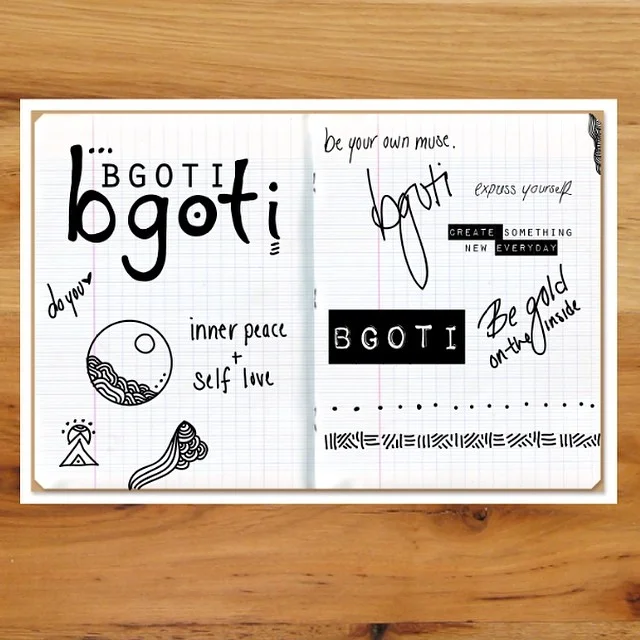 BGOTI
bgoti
do you
inner peace
+
self love
be your own muse.
bgoti
express yourself
CREATE SOMETHING
NEW EVERYDAY
BGOTI
Be gold
on the inside